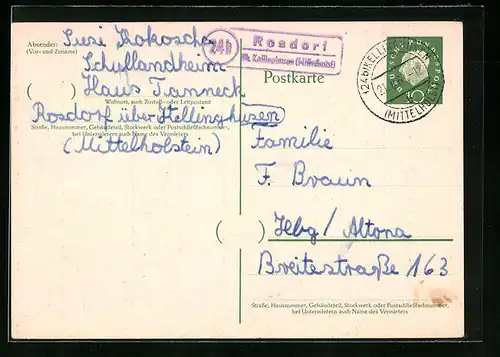 Absender:
(Vor- und Zuname)
Susi Kokoscha
Schullandheim
Haus Tanneck
Wohnort, auch Zustell- oder Leitpostamt
Rosdorf über Hellinghusen
Straße, Hausnummer, Gebäudeteil, Stockwerk oder Postschließfachnummer,
bei Untermietern auch Name des Vermieters
(Mittelholstein)
24b
Rosdorf
Postkarte
10
Familie
F. Braun
Hbg/ Altona
Breitestraße 163
Straße, Hausnummer, Gebäudeteil, Stockwerk oder Postschließfachnummer,
bei Untermietern auch Name des Vermieters